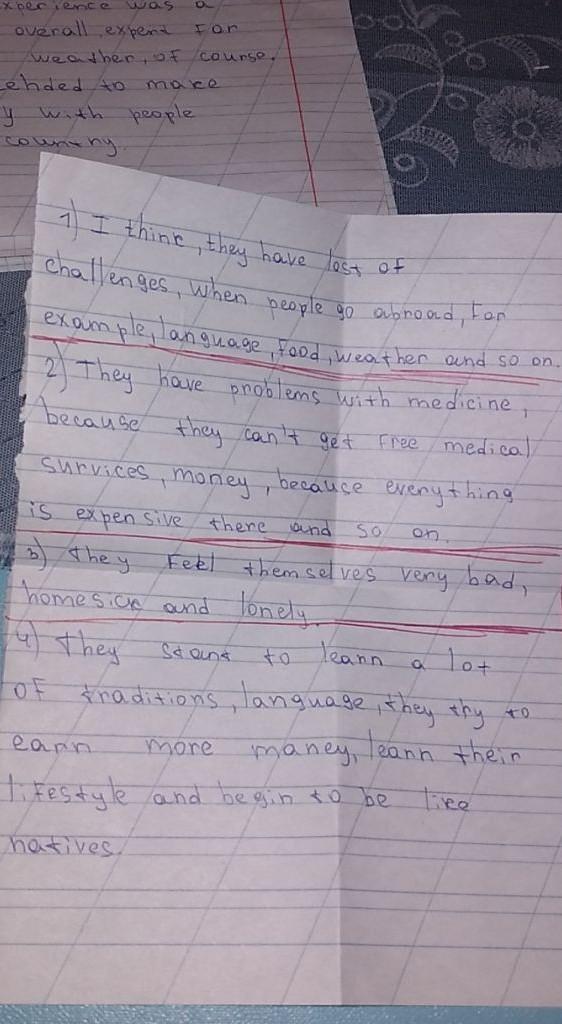 xperience was a
overall, expent for
weather, of course.
ended to make
y with people
country.
1) I think, they have lost of
challenges, when people go abroad, for
example, language, food, weather and so on.
2) They have problems with medicine,
because they can't get free medical
survices, money, because everything
is expensive there and so on.
3) They feel themselves very bad,
homesick and lonely.
4) They start to learn a lot
of traditions, language, they try to
earn more maney, learn their
lifestyle and begin to be like
natives.